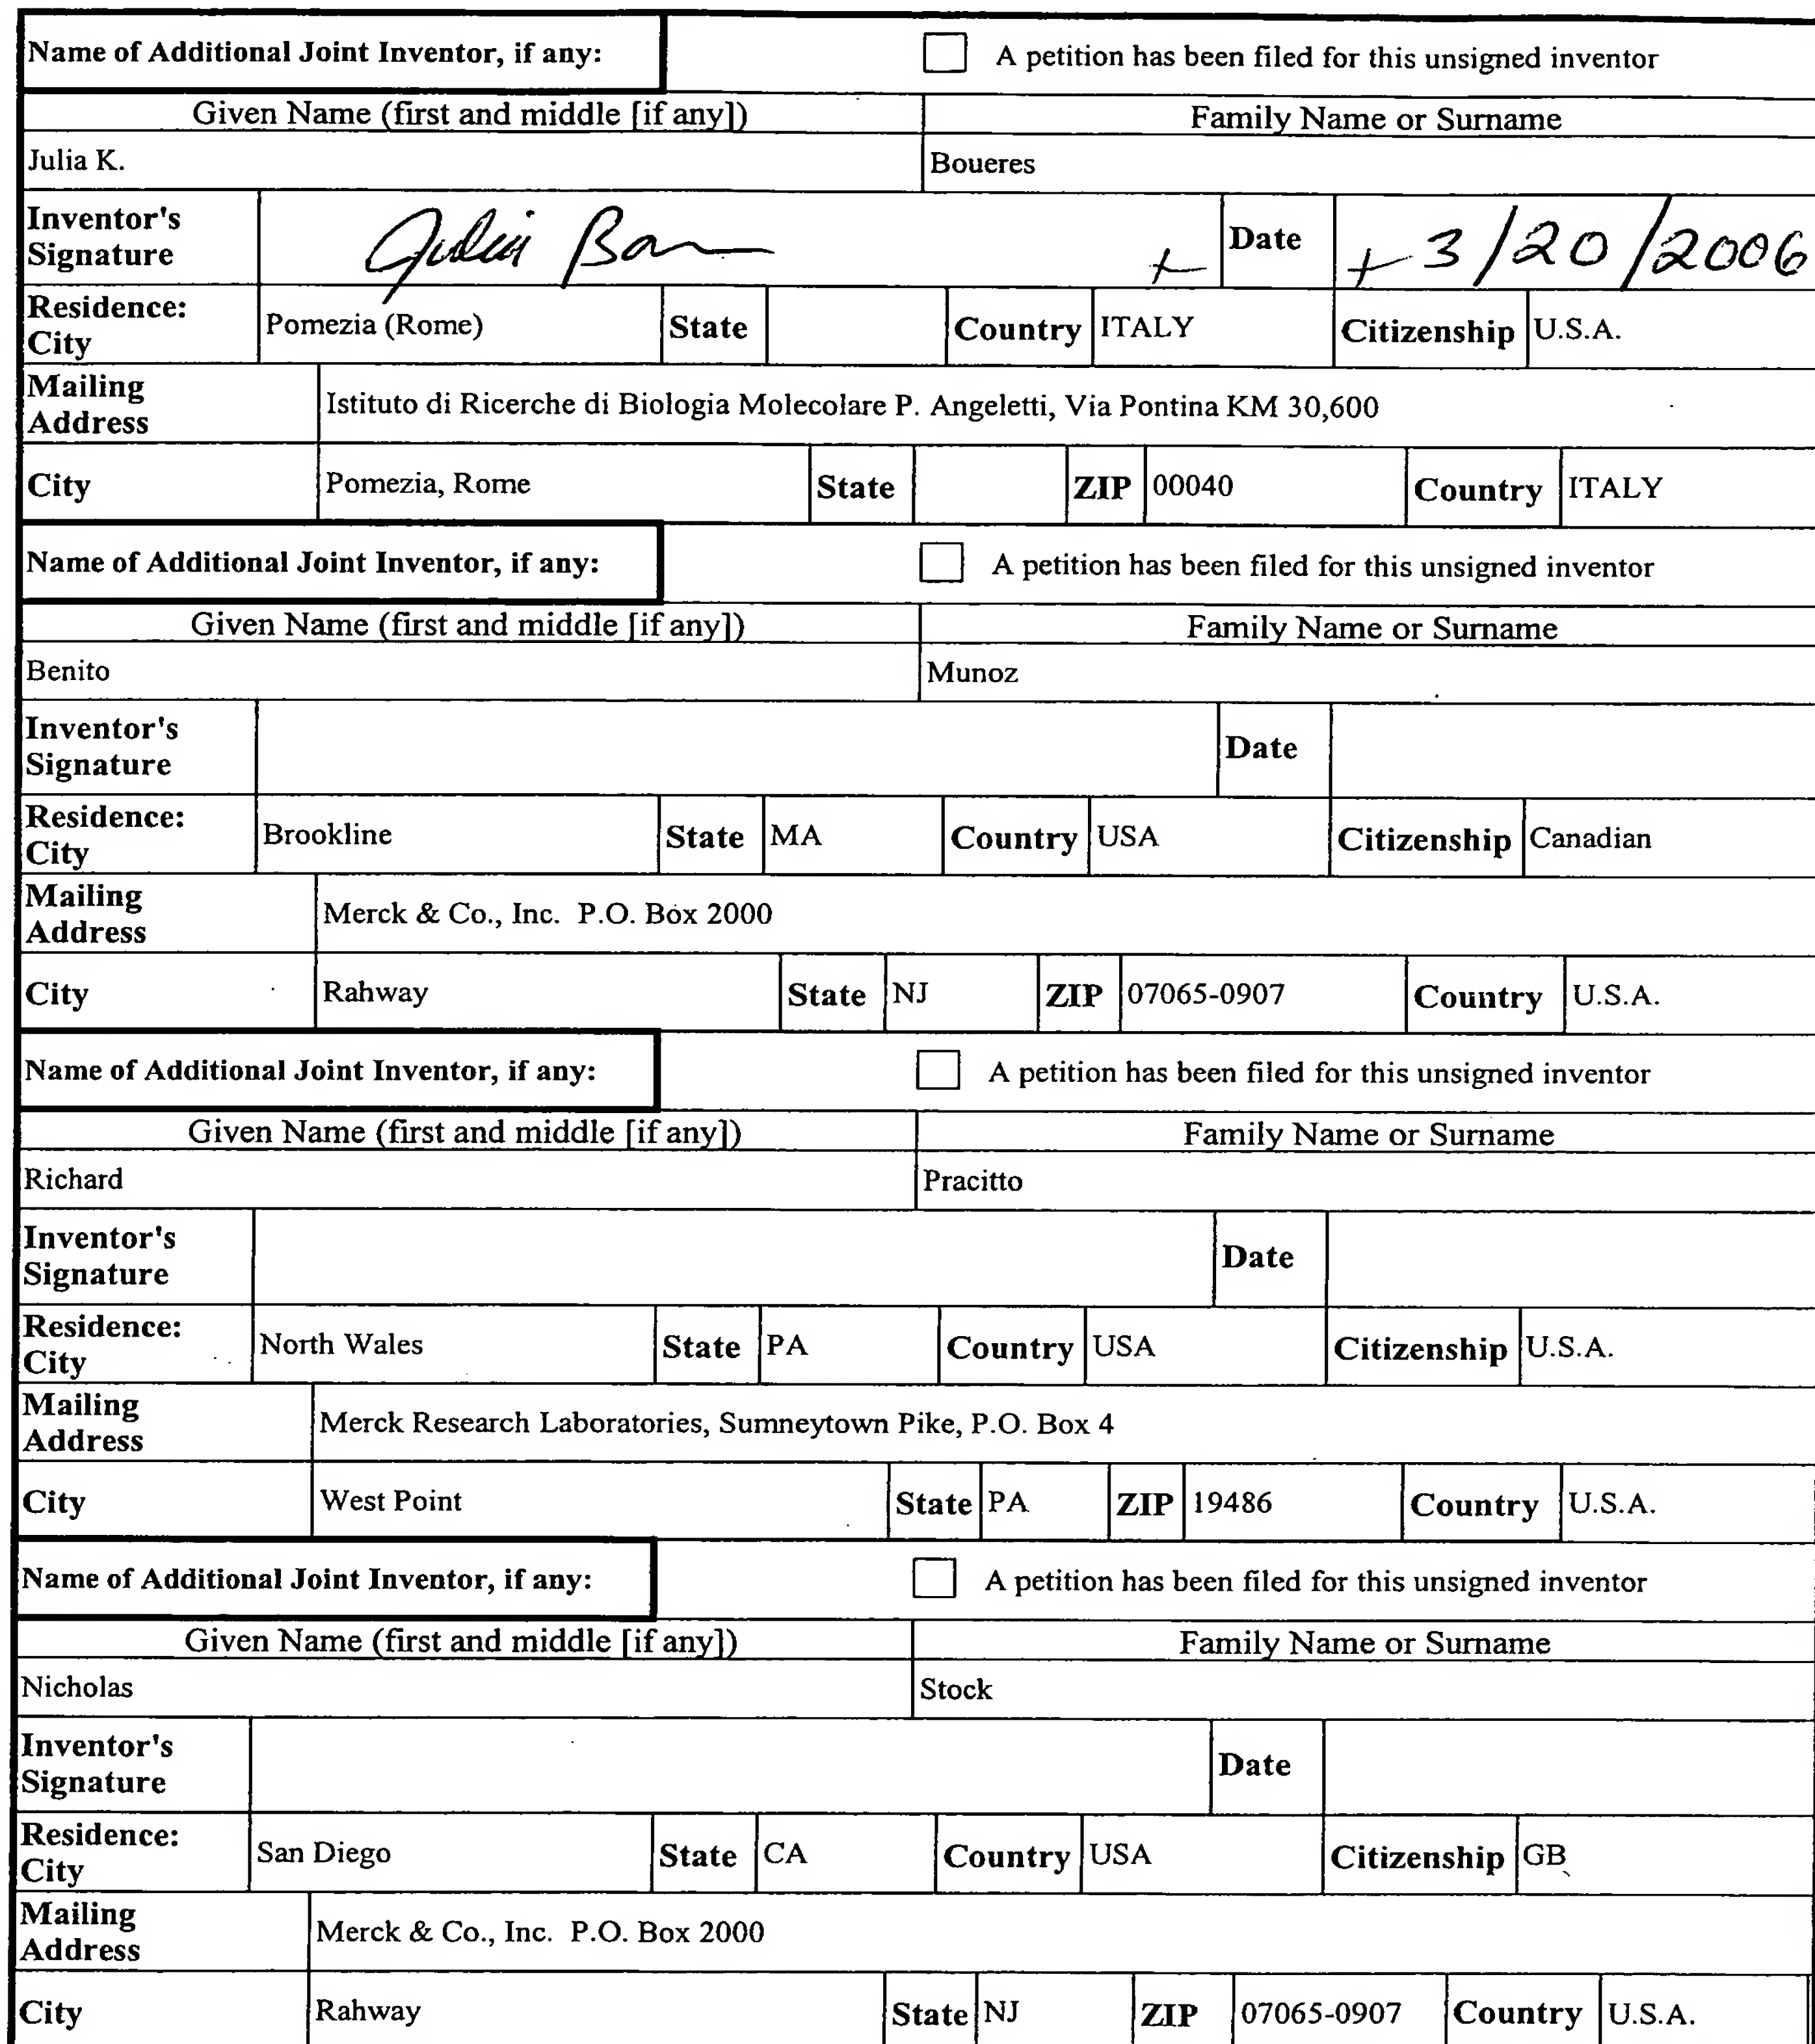 Name of Additional Joint Inventor, if any: A petition has been filed for this unsigned inventor
Given Name (first and middle [if any]) Family Name or Surname
Julia K. Boueres
Inventor's Signature Julia + Date + 3/20/2006
Residence: City Pomezia (Rome) State Country ITALY Citizenship U.S.A.
Mailing Address Istituto di Ricerche di Biologia Molecolare P. Angeletti, Via Pontina KM 30,600
City Pomezia, Rome State ZIP 00040 Country ITALY
Name of Additional Joint Inventor, if any: A petition has been filed for this unsigned inventor
Given Name (first and middle [if any]) Family Name or Surname
Benito Munoz
Inventor's Signature Date
Residence: City Brookline State MA Country USA Citizenship Canadian
Mailing Address Merck & Co., Inc. P.O. Box 2000
City Rahway State NJ ZIP 07065-0907 Country U.S.A.
Name of Additional Joint Inventor, if any: A petition has been filed for this unsigned inventor
Given Name (first and middle [if any]) Family Name or Surname
Richard Pracitto
Inventor's Signature Date
Residence: City North Wales State PA Country USA Citizenship U.S.A.
Mailing Address Merck Research Laboratories, Sumneytown Pike, P.O. Box 4
City West Point State PA ZIP 19486 Country U.S.A.
Name of Additional Joint Inventor, if any: A petition has been filed for this unsigned inventor
Given Name (first and middle [if any]) Family Name or Surname
Nicholas Stock
Inventor's Signature Date
Residence: City San Diego State CA Country USA Citizenship GB
Mailing Address Merck & Co., Inc. P.O. Box 2000
City Rahway State NJ ZIP 07065-0907 Country U.S.A.